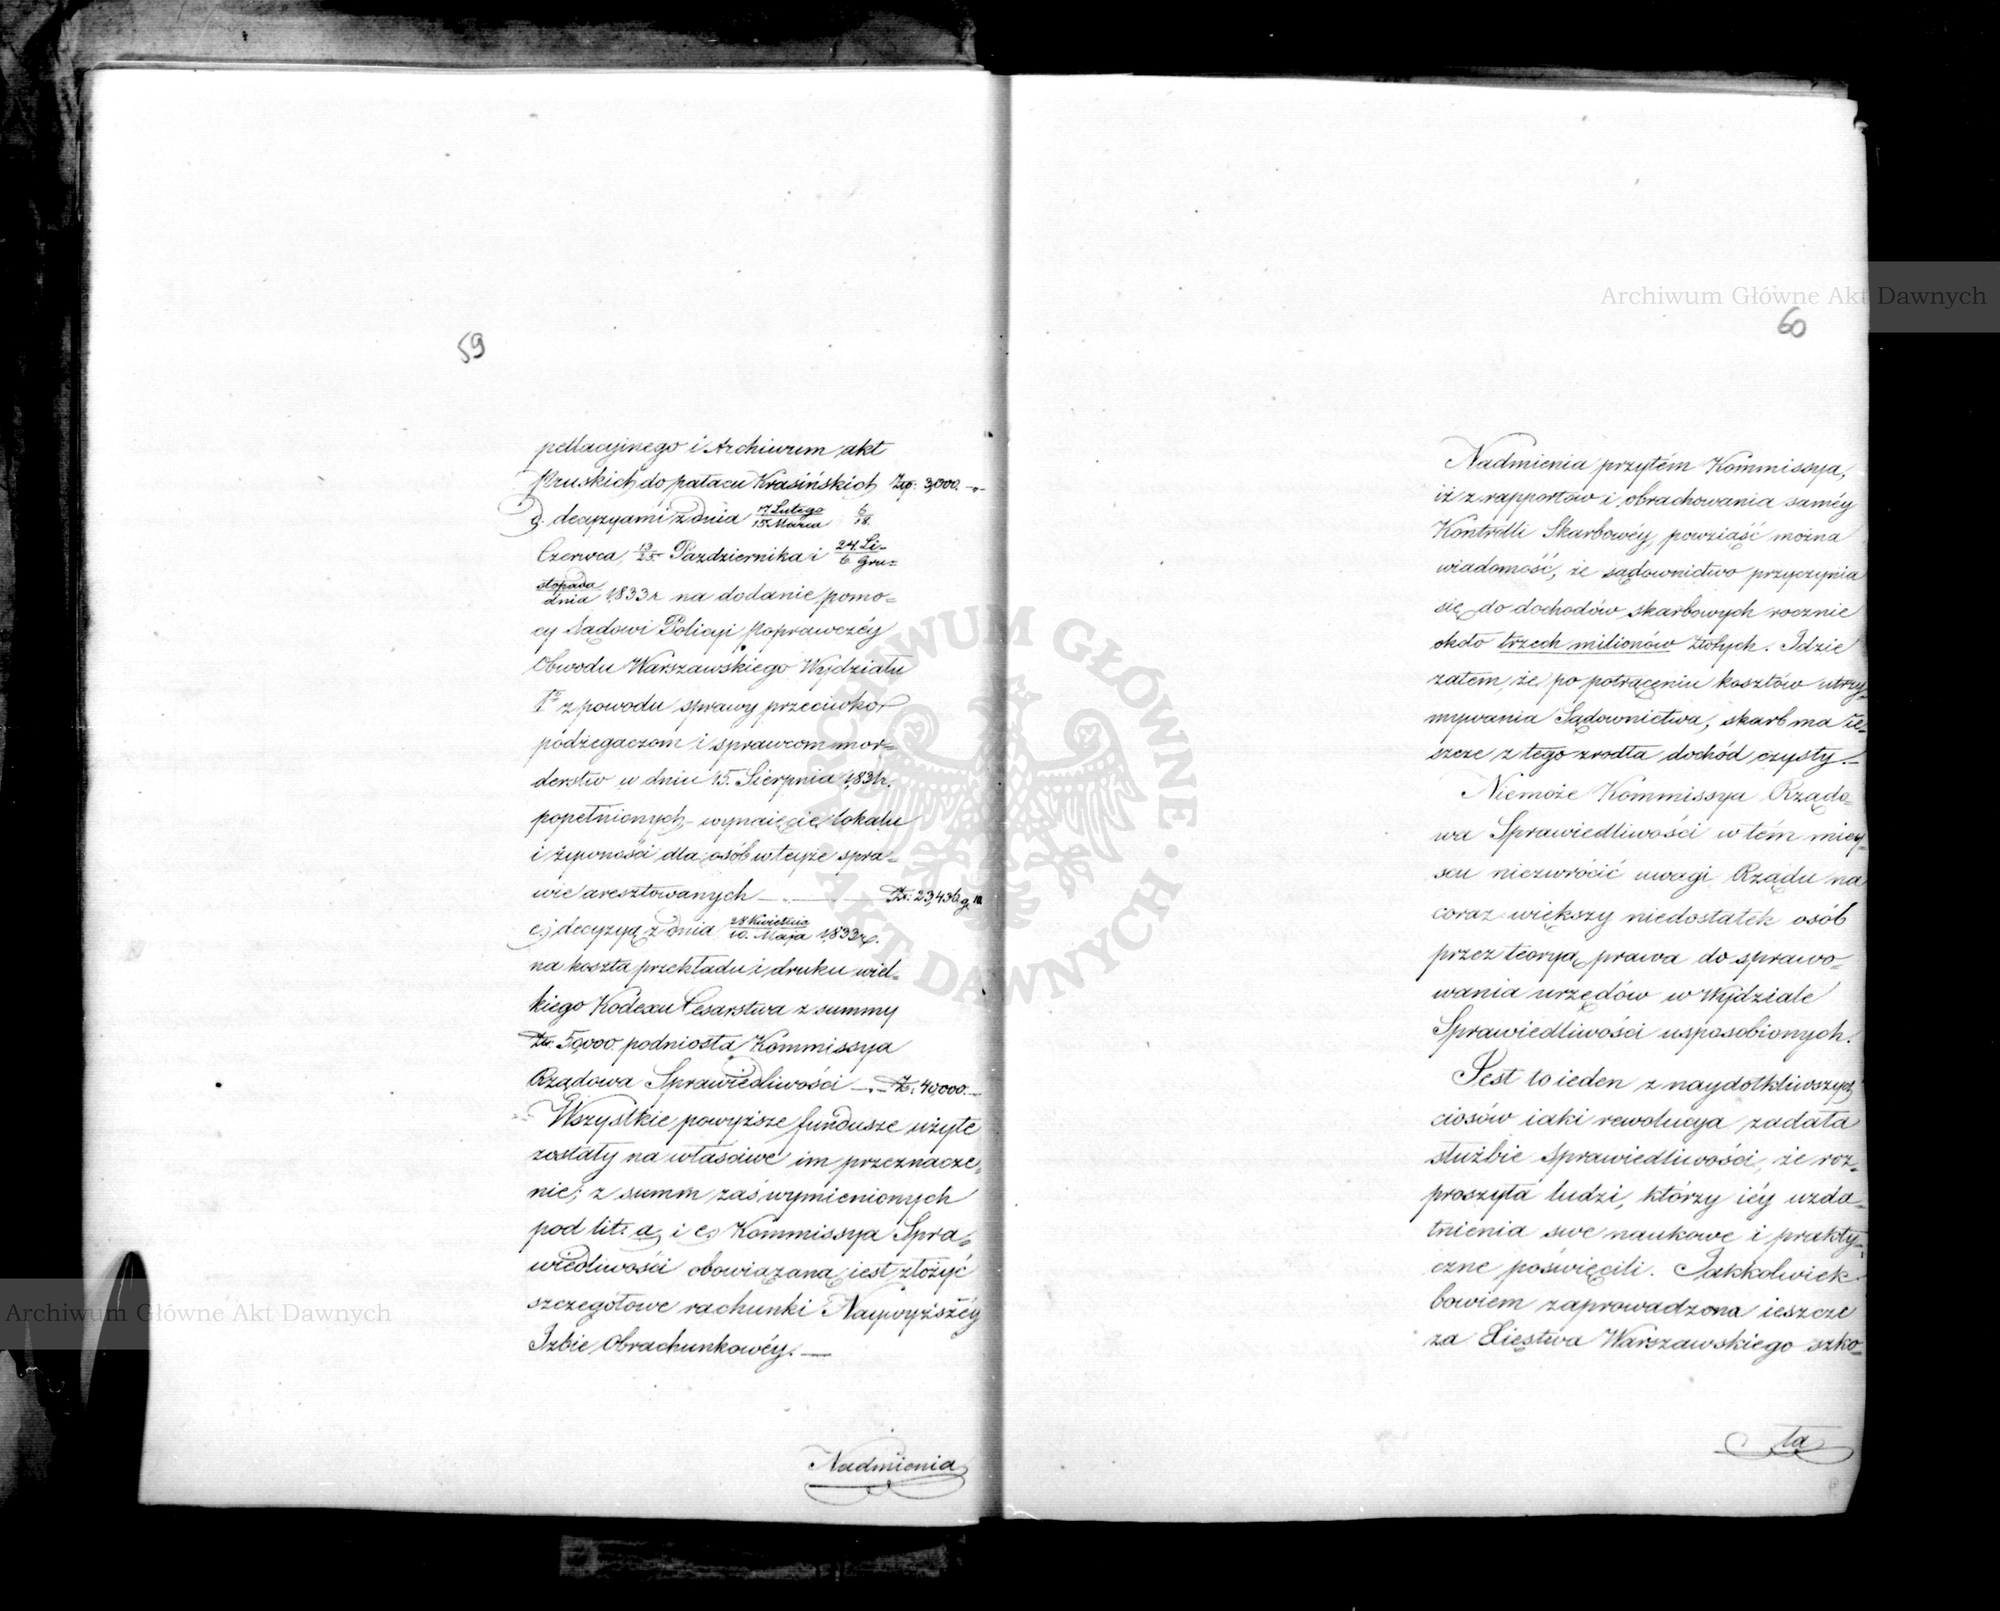 59
pellacyjnego i Archiwum akt
Pruskich do pałacu Krasińskich Złp: 3,000. -„-
d. decyzyami z dnia 17 Lutego/1 Marca 6/18.
Czerwca, 13/25. Pazdziernika i 24 Li-/6. Gru-
stopada/dnia 1833 r na dodanie pomo-
cy Sądowi Policyi Poprawczéy
Obwodu Warszawskiego Wydziału
1º z powodu sprawy przeciwko
podżegaczom i sprawcom mor-
derstw w dniu 15. Sierpnia 1831 r.
popełnionych,- wynaięcie lokalu
i żywności dla osób w teyże spra-
wie aresztowanych Zł: 23,436 g. 10
e.) decyzyą z dnia 28 Kwietnia/10. Maja 1833 r.
na koszta przekładu i druku wiel-
kiego Kodexu Cesarstwa z summy
Zł: 50,000. podniosła Kommissya
Rządowa Sprawiedliwości Zł: 40,000.-
Wszystkie powyższe fundusze użyte
zostały na właściwe im przeznacze-
nie; z summ zaś wymienionych
pod lit: a, i e, Kommissya Spra-
wiedliwości obowiązaną iest złożyć
szczegółowe rachunki Naywyższéy
Izbie Obrachunkowéy.—
Nadmienia
60
Nadmienia przytém Kommissya,
iż z rapportów i obrachowania saméy
Kontrolli Skarbowéy, powziąść można
wiadomość, że sądownictwo przyczynia
się do dochodów skarbowych rocznie
około trzech milionów Złotych. Idzie
zatem, że po potrąceniu kosztów utrzy-
mywania Sądownictwa, skarb ma ie-
szcze z tego zrodła dochód czysty.-
Niemoże Kommissya Rządo-
wa Sprawiedliwości w tém miey-
scu niezwrócić uwagi Rządu na
coraz większy niedostatek osób
przez teoryą prawa do sprawo-
wania urzędów w Wydziale
Sprawiedliwości usposobionych.
Jest to ieden z naydotkliwszych
ciosów iaki rewolucya zadała
służbie Sprawiedliwości, że roz-
proszyła ludzi, którzy iéy uzda-
tnienia swe naukowe i prakty-
czne poświęcili. Jakkolwiek
bowiem zaprowadzona ieszcze
za Xięstwa Warszawskiego szko-
ła
Archiwum Główne Akt Dawnych
Archiwum Główne Akt Dawnych
ARCHIWUM GŁÓWNE · AKT DAWNYCH ·